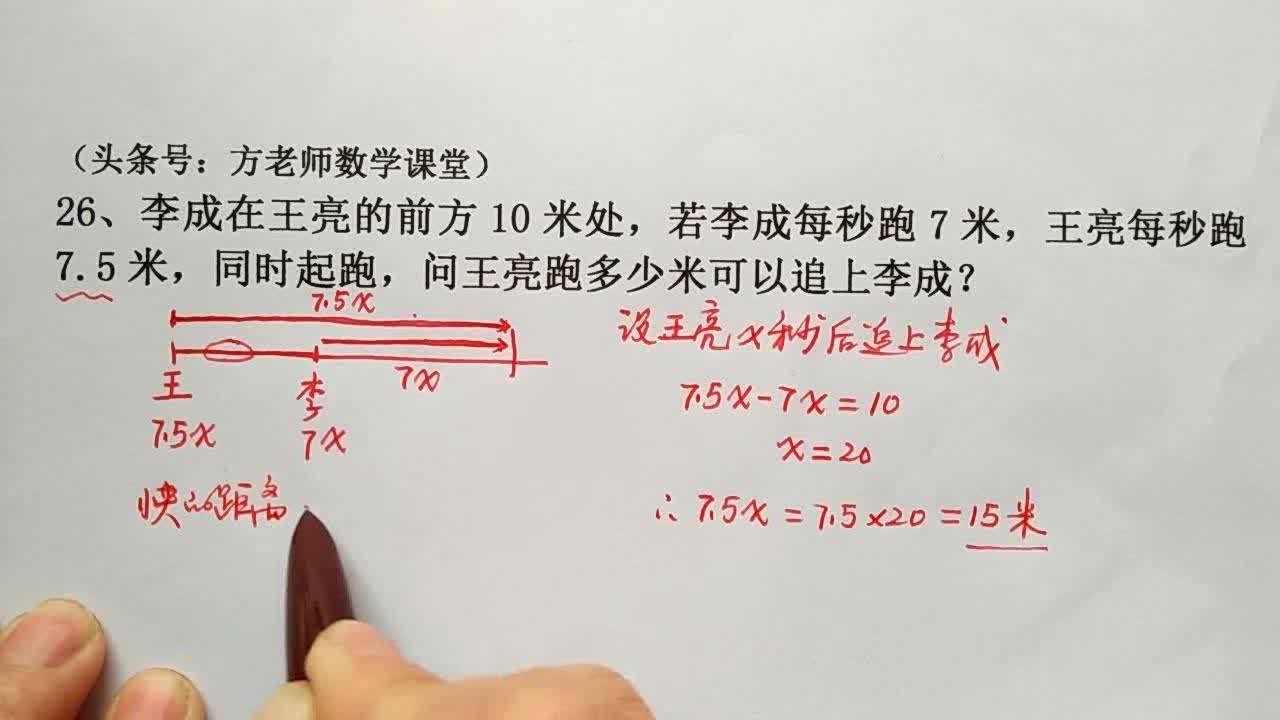 （头条号：方老师数学课堂）
26、李成在王亮的前方 10 米处，若李成每秒跑 7 米，王亮每秒跑
7.5 米，同时起跑，问王亮跑多少米可以追上李成？
7.5x
7x
王 李
7.5x 7x
快的距离
设王亮x秒后追上李成
7.5x-7x=10
x=20
∴ 7.5x=7.5×20=15米